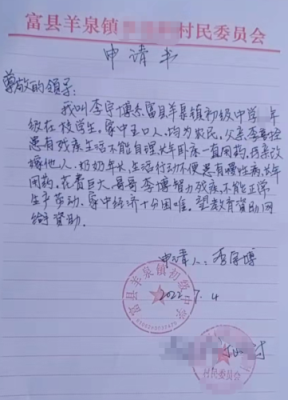 富县羊泉镇 村民委员会
申请书
尊敬的领导:
我叫李宇博系富县羊泉镇初级中学 年
级在校学生,家中五口人,均为农民,父亲李
患有残疾生活不能自理长年卧床一直用药,母亲改
嫁他人,奶奶年长,生活行动不便患有慢性病,长年
用药,花费巨大,哥哥李博智力残疾,不能正常
生产劳动,家中经济十分困难,望教育资助网
给予资助。
申请人:李宇博
富县羊泉镇初级中学
2022.7.4
村民委员会